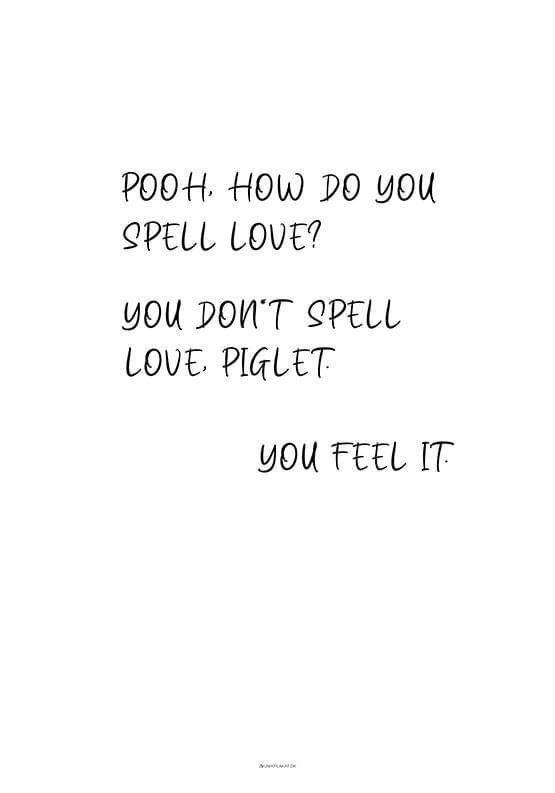 POOH, HOW DO YOU
SPELL LOVE?
YOU DON'T SPELL
LOVE, PIGLET.
YOU FEEL IT.